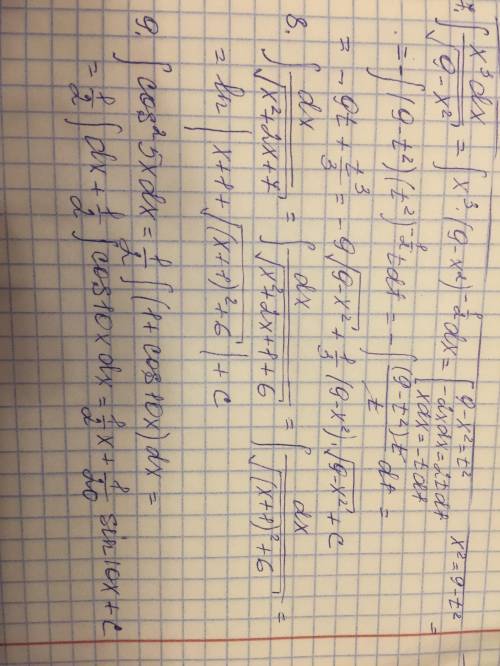 7. ∫ x³dx / √(9-x²) = ∫ x³·(9-x²)^(-1/2) dx = [9-x²=t² x²=9-t² -2xdx=2tdt xdx=-tdt] =
= -∫(9-t²)(t²)^(-1/2) t dt = -∫ (9-t²)t / t dt =
= -9t + t³/3 = -9√(9-x²) + 1/3 (9-x²)·√(9-x²) + C
8. ∫ dx / √(x²+2x+7) = ∫ dx / √(x²+2x+1+6) = ∫ dx / √((x+1)²+6) =
= ln |x+1+√((x+1)²+6)| + C
9. ∫ cos²5x dx = 1/2 ∫ (1+cos10x)dx =
= 1/2 ∫ dx + 1/2 ∫ cos10x dx = 1/2 x + 1/20 sin10x + C